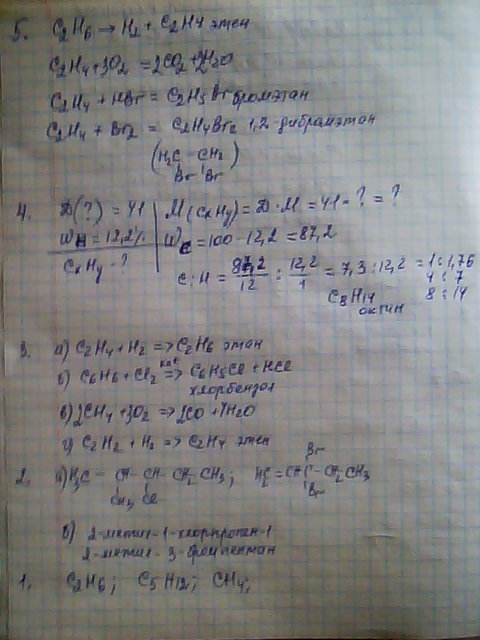 5. C2H6 → H2 + C2H4 этен
C2H4 + 3O2 = 2CO2 + 2H2O
C2H4 + HBr = C2H5Br бромэтан
C2H4 + Br2 = C2H4Br2 1,2-дибромэтан
(H2C - CH2)
Br Br
4. D(?) = 41 M(CxHy) = D·M = 41 · ? = ?
WH = 12,2% WC = 100 - 12,2 = 87,2
CxHy - ? C:H = 87,2/12 : 12,2/1 = 7,3 : 12,2 = 1:1,76
4:7
C8H14 8:14
октин
3. а) C2H4 + H2 => C2H6 этан
б) C6H6 + Cl2 => C6H5Cl + HCl
хлорбензол
в) 2CH4 + 3O2 => 2CO + 4H2O
г) C2H2 + H2 => C2H4 этен
Br
2. а) H3C - CH - CH - CH2 - CH3; H2C = CH C - CH2 CH3
CH3 Cl Br
б) 2-метил-1-хлорпропен-1
2-метил-3-бромпентан
1. C2H6; C5H12; CH4;